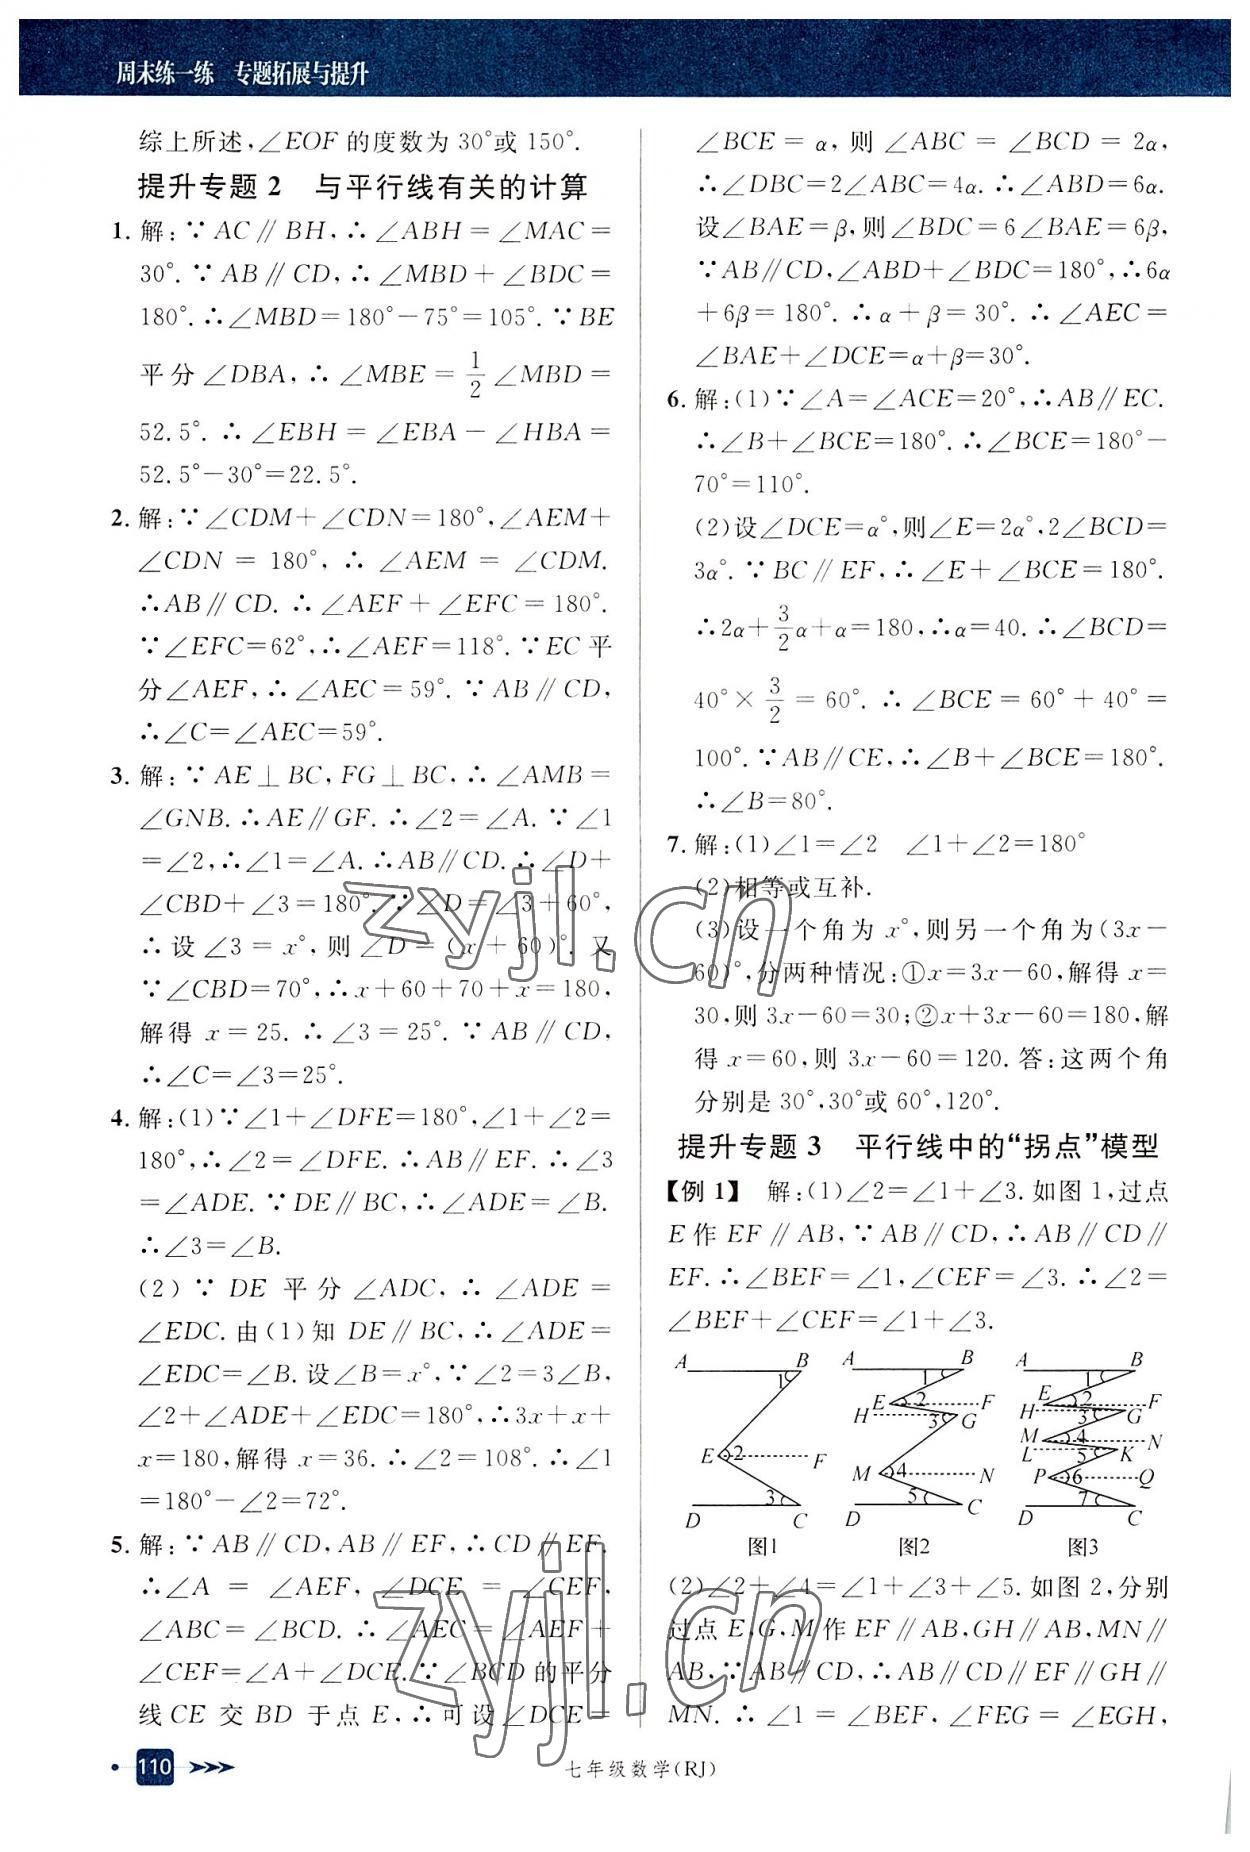 周末练一练　专题拓展与提升
综上所述,∠EOF 的度数为 30°或 150°.
提升专题 2　与平行线有关的计算
1. 解:∵ AC∥BH,∴∠ABH=∠MAC=
30°. ∵ AB∥CD,∴∠MBD+∠BDC=
180°. ∴∠MBD=180°-75°=105°. ∵BE
平分∠DBA,∴∠MBE=1/2∠MBD=
52.5°. ∴∠EBH=∠EBA-∠HBA=
52.5°-30°=22.5°.
2. 解:∵∠CDM+∠CDN=180°,∠AEM+
∠CDN = 180°, ∴ ∠AEM = ∠CDM.
∴AB∥CD. ∴∠AEF+∠EFC=180°.
∵∠EFC=62°,∴∠AEF=118°. ∵EC 平
分∠AEF,∴∠AEC=59°. ∵AB∥CD,
∴∠C=∠AEC=59°.
3. 解:∵ AE⊥BC,FG⊥BC,∴∠AMB=
∠GNB. ∴AE∥GF. ∴∠2=∠A. ∵∠1
=∠2,∴∠1=∠A. ∴AB∥CD. ∴∠D+
∠CBD+∠3=180°. ∵∠D=∠3+60°,
∴设∠3=x°,则∠D=(x+60)°. 又
∵∠CBD=70°,∴x+60+70+x=180,
解得 x=25. ∴∠3=25°. ∵AB∥CD,
∴∠C=∠3=25°.
4. 解:(1)∵∠1+∠DFE=180°,∠1+∠2=
180°,∴∠2=∠DFE. ∴AB∥EF. ∴∠3
=∠ADE. ∵DE∥BC,∴∠ADE=∠B.
∴∠3=∠B.
(2) ∵ DE 平分∠ADC, ∴ ∠ADE =
∠EDC. 由(1)知 DE∥BC,∴∠ADE=
∠EDC=∠B. 设∠B=x°,∵∠2=3∠B,
∠2+∠ADE+∠EDC=180°,∴3x+x+
x=180,解得 x=36. ∴∠2=108°. ∴∠1
=180°-∠2=72°.
5. 解:∵AB∥CD,AB∥EF,∴CD∥EF.
∴∠A = ∠AEF, ∠DCE=∠CEF,
∠ABC=∠BCD. ∴∠AEC=∠AEF+
∠CEF=∠A+∠DCE. ∵∠BCD 的平分
线 CE 交 BD 于点 E,∴可设∠DCE=
∠BCE = α, 则 ∠ABC = ∠BCD = 2α,
∴∠DBC=2∠ABC=4α. ∴∠ABD=6α.
设∠BAE=β,则∠BDC=6∠BAE=6β,
∵AB∥CD,∠ABD+∠BDC=180°,∴6α
+6β=180°. ∴α+β=30°. ∴∠AEC=
∠BAE+∠DCE=α+β=30°.
6. 解:(1)∵∠A=∠ACE=20°,∴AB∥EC.
∴∠B+∠BCE=180°. ∴∠BCE=180°-
70°=110°.
(2)设∠DCE=α°,则∠E=2α°,2∠BCD=
3α°. ∵BC∥EF,∴∠E+∠BCE=180°.
∴2α+3/2α+α=180,∴α=40. ∴∠BCD=
40°×3/2=60°. ∴∠BCE=60°+40°=
100°. ∵AB∥CE,∴∠B+∠BCE=180°.
∴∠B=80°.
7. 解:(1)∠1=∠2　∠1+∠2=180°
(2)相等或互补.
(3)设一个角为 x°,则另一个角为(3x-
60)°,分两种情况:①x=3x-60,解得 x=
30,则 3x-60=30;②x+3x-60=180,解
得 x=60,则 3x-60=120. 答:这两个角
分别是 30°,30°或 60°,120°.
提升专题 3　平行线中的“拐点”模型
【例 1】　解:(1)∠2=∠1+∠3. 如图 1,过点
E 作 EF∥AB,∵AB∥CD,∴AB∥CD∥
EF. ∴∠BEF=∠1,∠CEF=∠3. ∴∠2=
∠BEF+∠CEF=∠1+∠3.
A B 1 E 2 F 3 D C
图1
A B 1 E 2 F H 3 G M 4 N 5 D C
图2
A B 1 E 2 F H 3 G M 4 N L 5 K P 6 Q 7 D C
图3
(2)∠2+∠4=∠1+∠3+∠5. 如图 2,分别
过点 E,G,M 作 EF∥AB,GH∥AB,MN∥
AB,∵AB∥CD,∴AB∥CD∥EF∥GH∥
MN. ∴∠1=∠BEF,∠FEG=∠EGH,
110
七年级数学(RJ)
zyjl.cn
zyjl.cn